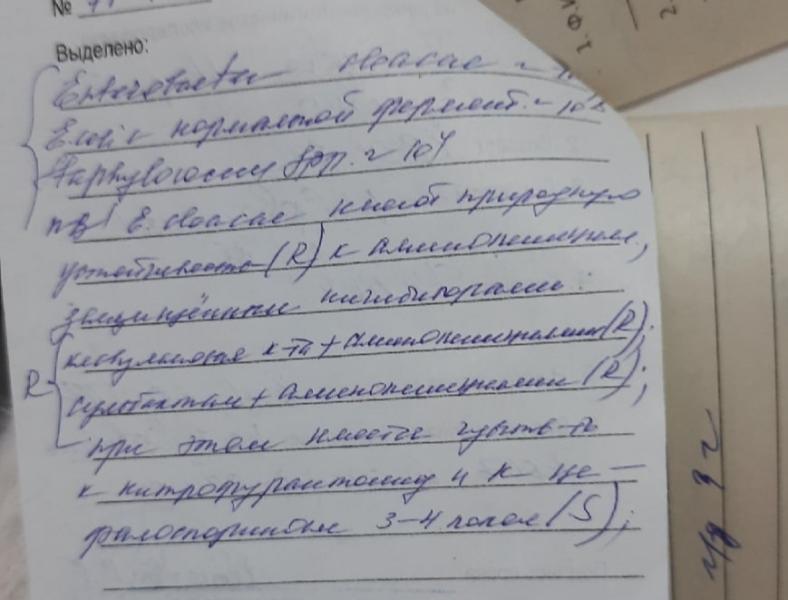 №
Выделено:
Enterobacter cloacae ~
E. coli с нормальной фермент. ~ 10
Staphylococcus spp. ~ 10⁴
NB! E. cloacae имеют природную
устойчивость (R) к аминопенициллинам,
защищённым ингибиторами:
клавулановая к-та + аминопенициллины (R);
сульбактам + аминопенициллины (R);
R
при этом имеется чувств-ть
к нитрофурантоину и к це–
фалоспоринам 3–4 покол (S);
1. Ф.И
2.